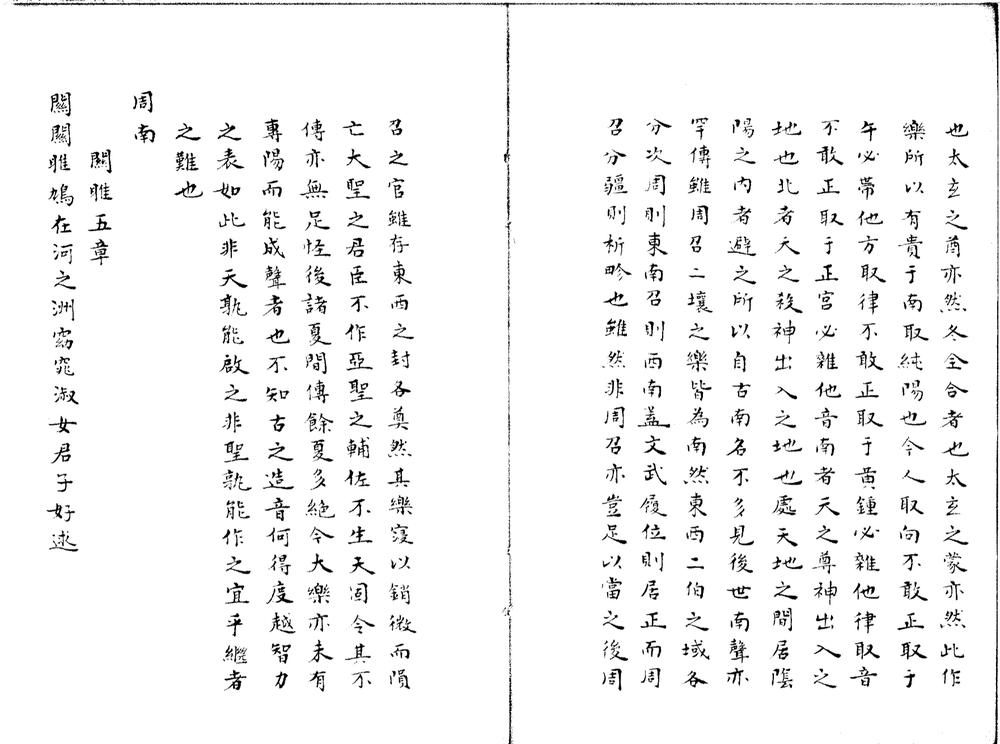 也太玄之酋亦然冬全合者也太玄之蒙亦然此作
樂所以有貴于南取純陽也今人取向不敢正取于
午必帶他方取律不敢正取于黃鍾必雜他律取音
不敢正取于正宮必雜他音南者天之尊神出入之
地也北者天之殺神出入之地也處天地之間居陰
陽之內者避之所以自古南名不多見後世南聲亦
罕傳雖周召二壤之樂皆為南然東西二伯之域各
分次周則東南召則西南蓋文武履位則居正而周
召分疆則析畛也雖然非周召亦豈足以當之後周
召之官雖存東西之封各奠然其樂寖以銷微而隕
亡大聖之君臣不作亞聖之輔佐不生天固令其不
傳亦無足恠後諸夏間傳餘夏多絕今大樂亦未有
專陽而能成聲者也不知古之造音何得度越智力
之表如此非天孰能啟之非聖孰能作之宜乎繼者
之難也
周南
關雎五章
關關雎鳩在河之洲窈窕淑女君子好逑